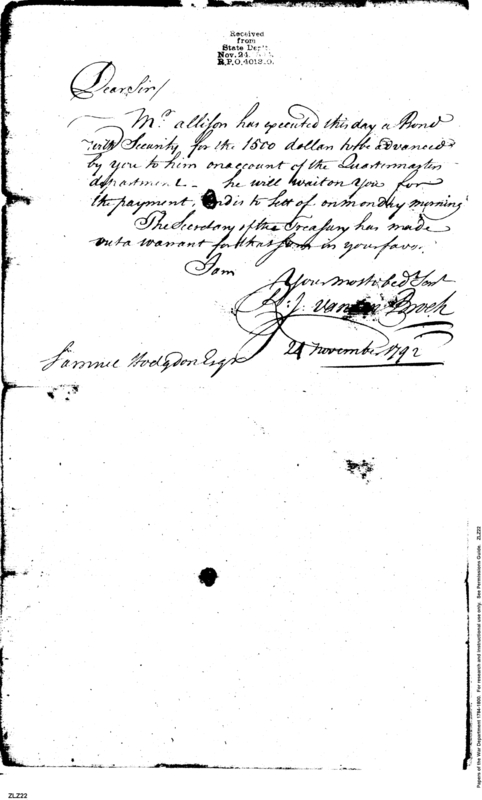 Received
from
State Dept.
Nov. 24.
R.P.O. 401290.
Dear Sir/
Mr. Allison has executed this day a Bond
with Security for the 1500 dollars to be advanced
by you to him on account of the Quartermaster
department - he will wait on You for
the payment, and is to sett of on monday morning
The Secretary of the Treasury has made
out a warrant for that Sum in your favor.
I am
Your most obedt Servt
Van Broek
24 November 1792
Samuel Hodgdon Esqr
Papers of the War Department 1784-1800. For research and instructional use only. See Permissions Guide. ZLZ22
ZLZ22